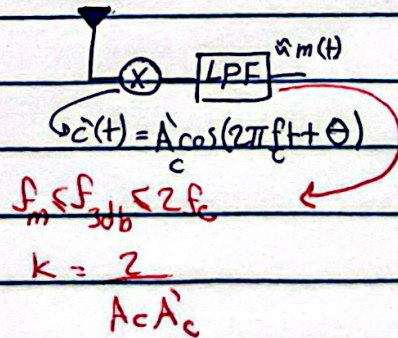 ≈ m(t)
X LPF
c'(t) = A'c cos(2πfct + θ)
fm < f3db < 2fc
k = 2 / Ac A'c